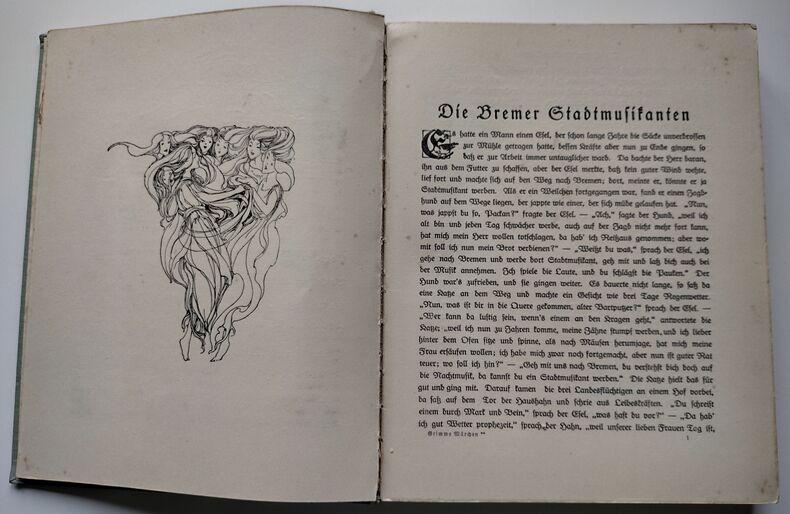 Die Bremer Stadtmusikanten
Es hatte ein Mann einen Esel, der schon lange Jahre die Säcke unverdrossen
zur Mühle getragen hatte, dessen Kräfte aber nun zu Ende gingen, so
daß er zur Arbeit immer untauglicher ward. Da dachte der Herr daran,
ihn aus dem Futter zu schaffen, aber der Esel merkte, daß kein guter Wind wehte,
lief fort und machte sich auf den Weg nach Bremen; dort, meinte er, könnte er ja
Stadtmusikant werden. Als er ein Weilchen fortgegangen war, fand er einen Jagd-
hund auf dem Wege liegen, der jappte wie einer, der sich müde gelaufen hat. „Nun,
was jappst du so, Packan?“ fragte der Esel. — „Ach,“ sagte der Hund, „weil ich
alt bin und jeden Tag schwächer werde, auch auf der Jagd nicht mehr fort kann,
hat mich mein Herr wollen totschlagen, da hab' ich Reißaus genommen; aber wo-
mit soll ich nun mein Brot verdienen?“ — „Weißt du was,“ sprach der Esel, „ich
gehe nach Bremen und werde dort Stadtmusikant, geh mit und laß dich auch bei
der Musik annehmen. Ich spiele die Laute, und du schlägst die Pauken.“ Der
Hund war's zufrieden, und sie gingen weiter. Es dauerte nicht lange, so saß da
eine Katze an dem Weg und machte ein Gesicht wie drei Tage Regenwetter.
„Nun, was ist dir in die Quere gekommen, alter Bartputzer?“ sprach der Esel. —
„Wer kann da lustig sein, wenn's einem an den Kragen geht,“ antwortete die
Katze; „weil ich nun zu Jahren komme, meine Zähne stumpf werden, und ich lieber
hinter dem Ofen sitze und spinne, als nach Mäusen herumjage, hat mich meine
Frau ersäufen wollen; ich habe mich zwar noch fortgemacht, aber nun ist guter Rat
teuer; wo soll ich hin?“ — „Geh mit uns nach Bremen, du verstehst dich doch auf
die Nachtmusik, da kannst du ein Stadtmusikant werden.“ Die Katze hielt das für
gut und ging mit. Darauf kamen die drei Landesflüchtigen an einem Hof vorbei,
da saß auf dem Tor der Haushahn und schrie aus Leibeskräften. „Du schreist
einem durch Mark und Bein,“ sprach der Esel, „was hast du vor?“ — „Da hab'
ich gut Wetter prophezeit,“ sprach der Hahn, „weil unserer lieben Frauen Tag ist,
Grimms Märchen
1